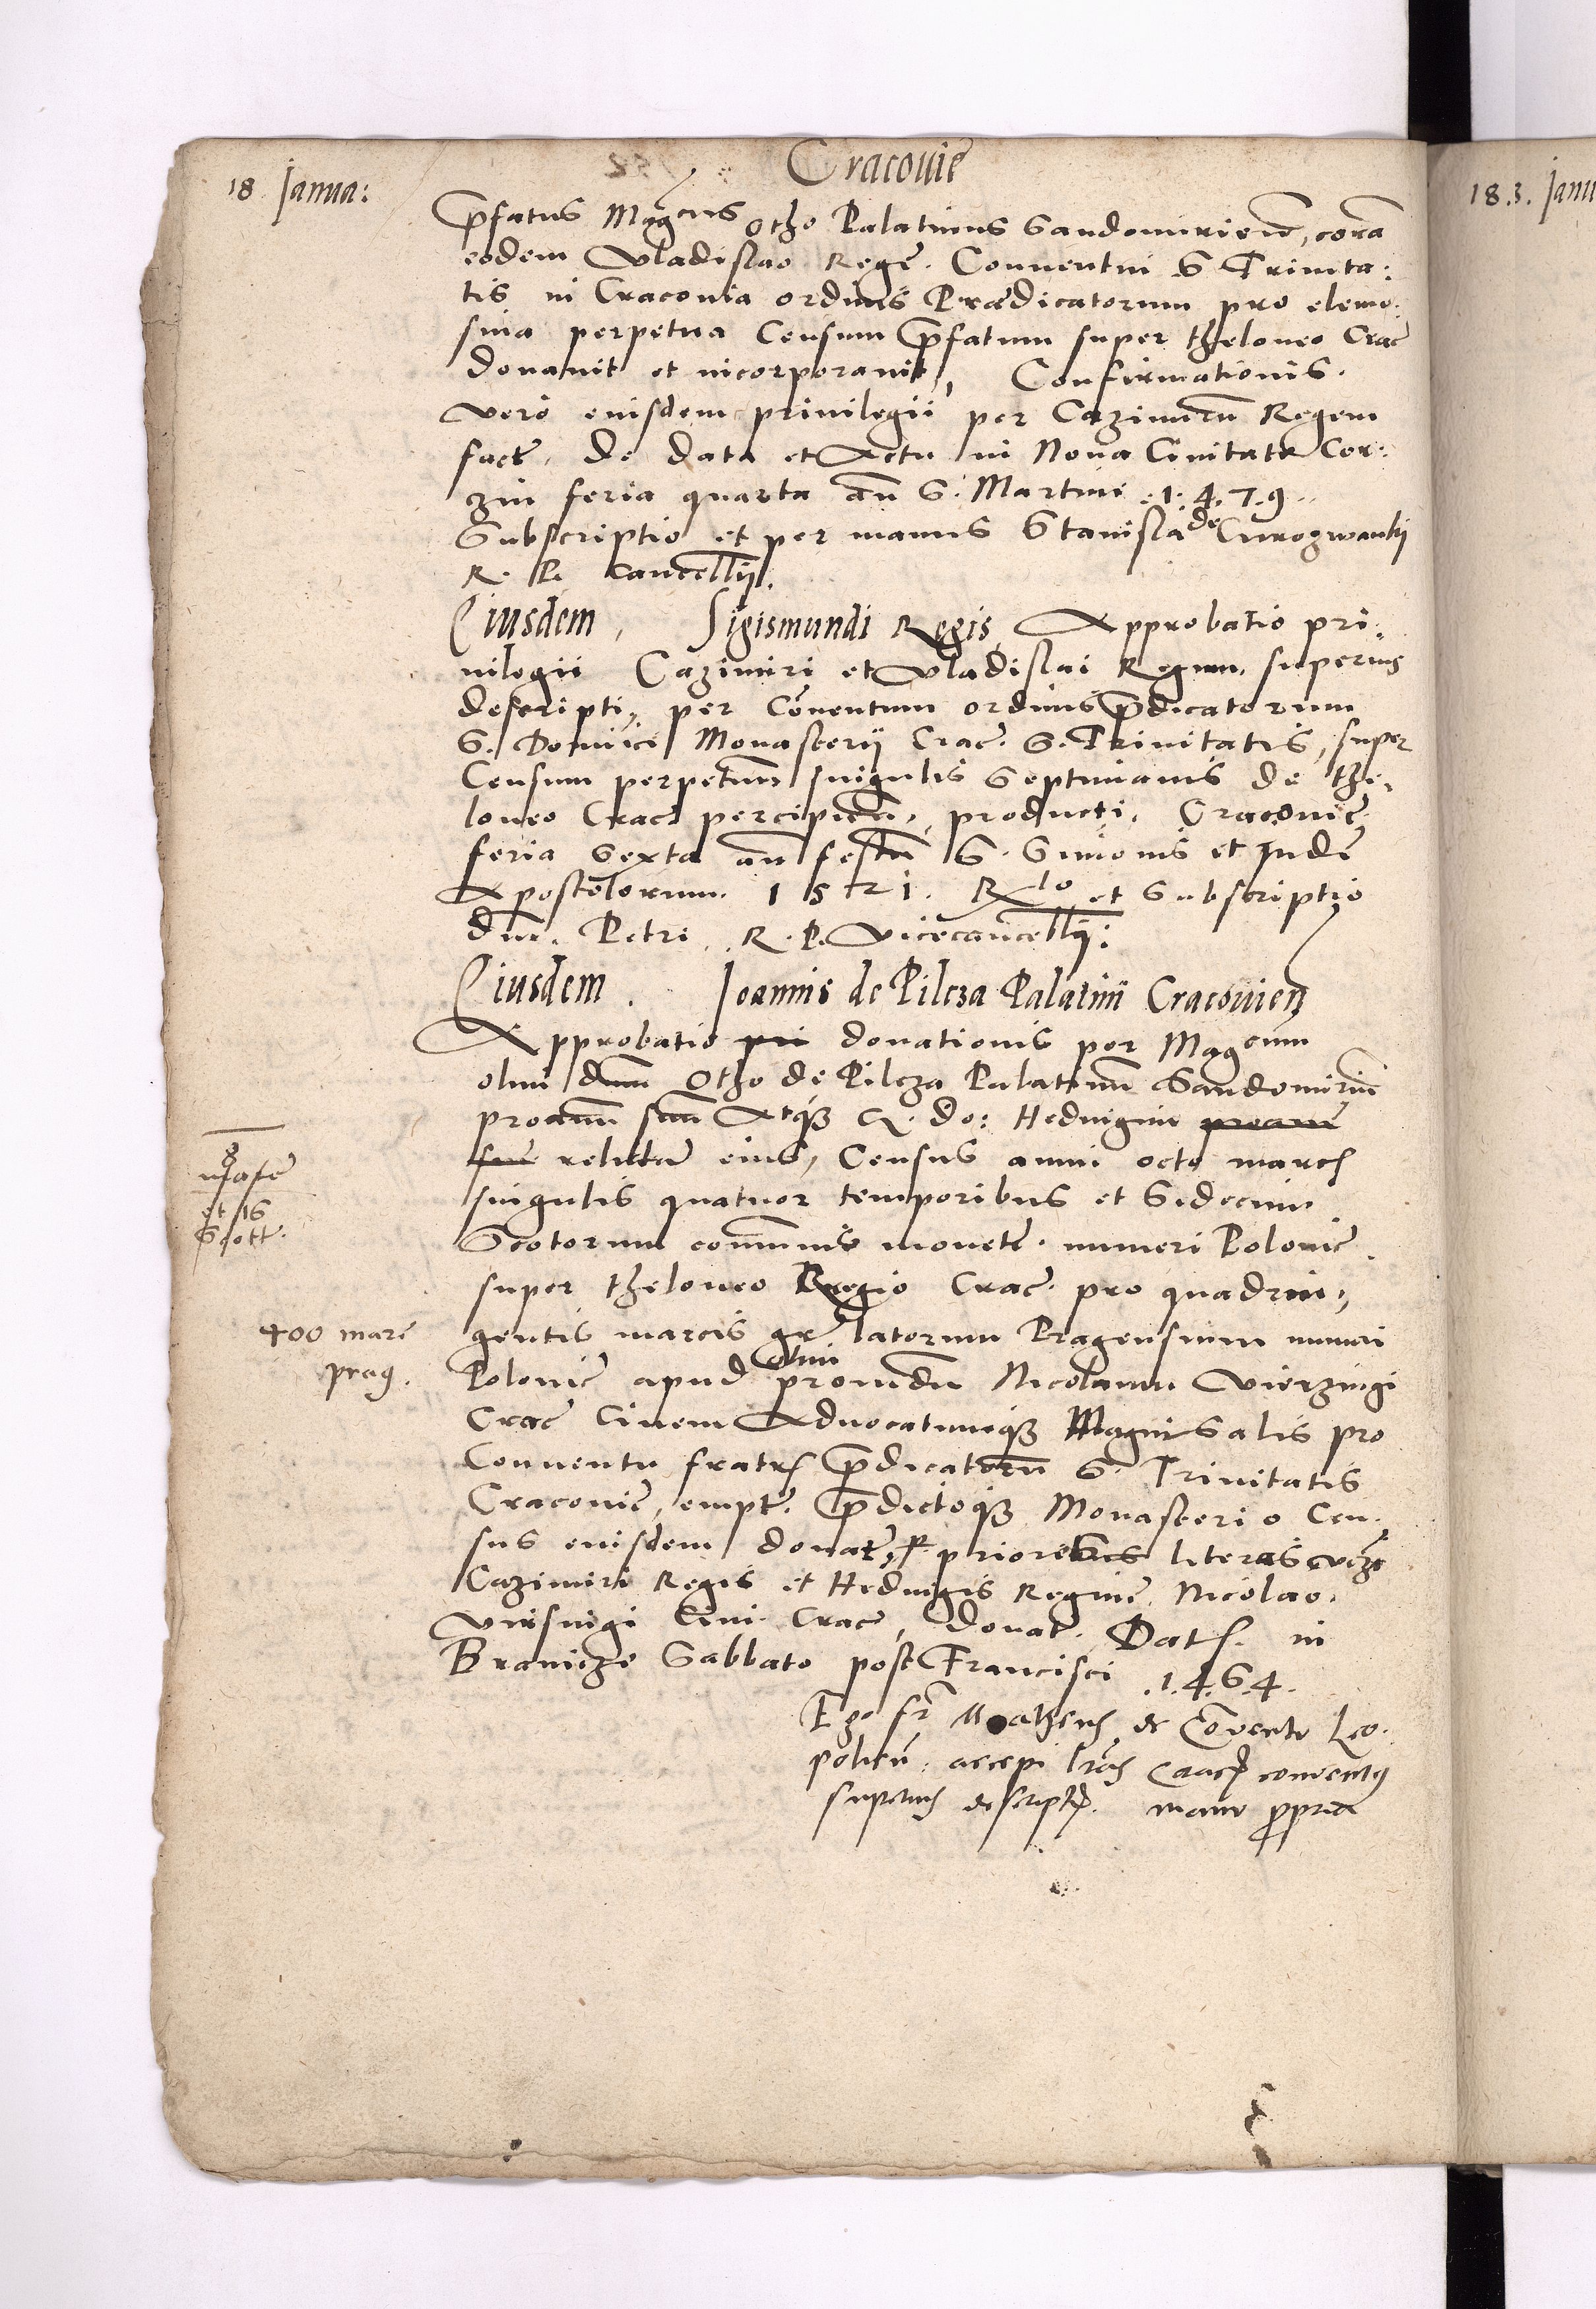 Cracouie
18 Janua:
18.3. Janu
Pfatus Magcus Otho Palatinus Sandomirien, cora
eodem Vladislao Rege. Conuentui S Trinita:
tis in Craconia ordinis Prædicatorum pro elemo:
sina perpetua Censum Pfatum super theloneo Crac
donauit et incorporauit, Confirmationis.
vero eiusdem priuilegii per Cazimiru Regem
facte, de data et Actu in Noua Ciuitate Cor:
zin feria quarta an S. Martini .1.4.7.9..
Subscriptio et per manus Stanisla de Curozwanky
R. P. Cancellii.
Eiusdem, Sigismundi Regis, Approbatio pri:
uilegii Cazimiri et Vladislai Regum, superius
descripti, per Couentum ordinis Pdicatorum
S. Dominici Monasterii Crac. S. Trinitatis, super
Censum perpetuum singulis Septimanis de the,
loneo Crac percipien, producti, Craconie
feria Sexta an festu S. Simonis et Iude
Apostolorum. 1521. Rlo et Subscriptio
dni. Petri R. P. Vicecancellii:
Eiusdem. Joannis de Pilcza Palatini Cracouien
Approbatio pri donationis per Magcum
olim dnum Otho de Pilcza Palatinu Sandomirien
proauu suu Atque do: Heduigim proaue
sue relicta eius, Census annui octo march
singulis quatuor temporibus et Sedecim
Scotorum communis monete. numeri Polonie
super theloneo Regio Crac. pro quadrin,
gentis marcis gr latorum Pragensium numeri
Polonie apud olim prouidu Nicolaum Vierzingi
Crac Ciuem Aduocatumque Magni Salis pro
Conuentu fratr Pdicatoru S. Trinitatis
Craconie, empte. Pdictoque Monasterio Cen,
sus eiusdem donate, priores literas
Cazimiri Regis et Heduigis Regine, Nicolao.
Virsingi Ciui Crac, donat. Dat. in
Branicze Sabbato post Francisci .1.4.6.4.
8
et 16
Scott.
400 marc
prag.
Ego fr Matheus de Couentu Leo.
policn: accepi lras Crac conuentus
superius descript. manu ppria